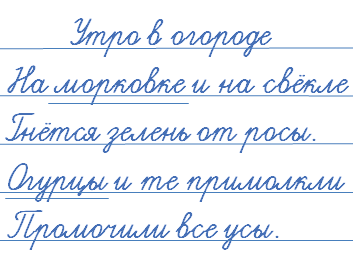 Утро в огороде
На морковке и на свёкле
Гнётся зелень от росы.
Огурцы и те примолкли
Промочили все усы.